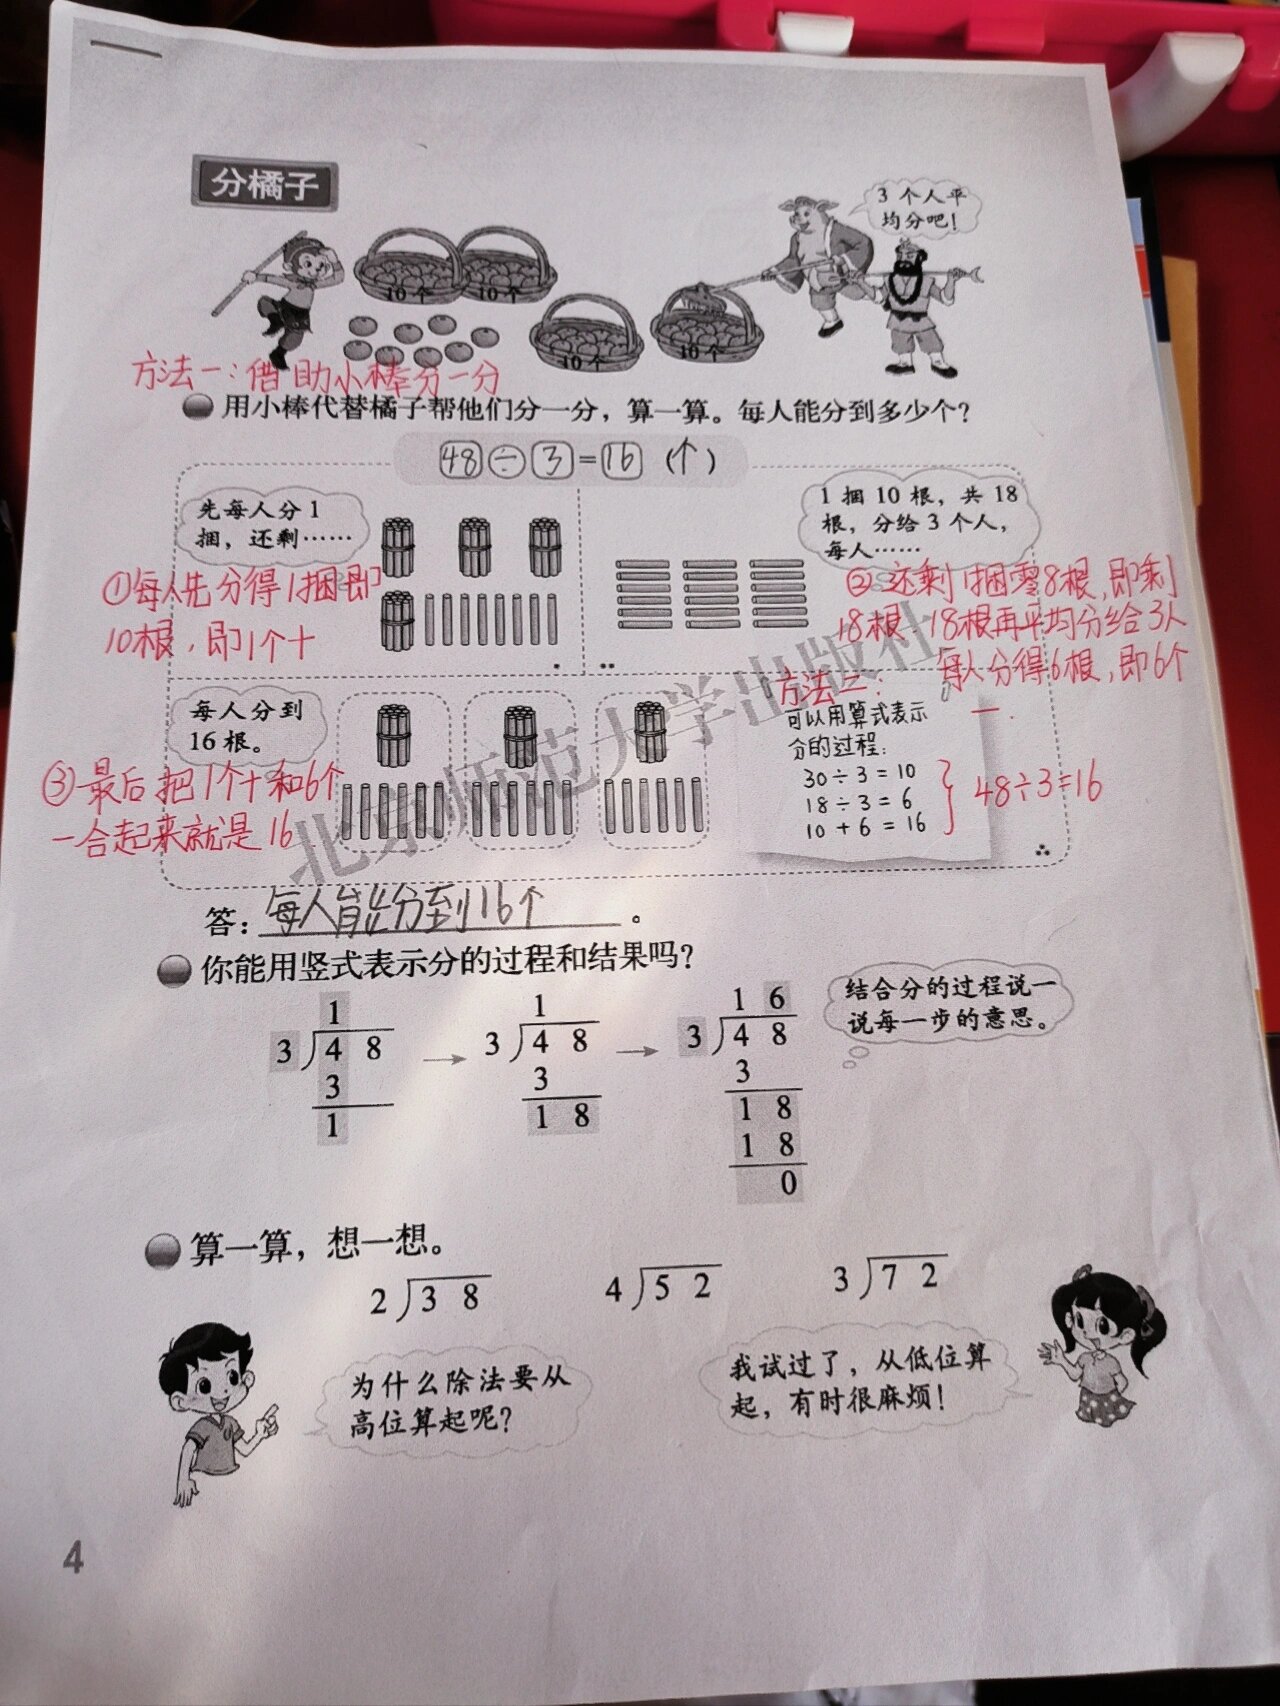 分橘子
3 个人平
均分吧！
10 个
10 个
10 个
10 个
方法一：借助小棒分一分
用小棒代替橘子帮他们分一分，算一算。每人能分到多少个？
48÷3=16（个）
先每人分 1
捆，还剩……
1 捆 10 根，共 18
根，分给 3 个人，
每人……
①每人先分得1捆即
10根，即1个十
②还剩1捆零8根，即剩
18根 18根再平均分给3人
每人分得6根，即6个
一.
每人分到
16 根。
③最后把1个十和6个
一合起来就是16
方法二：
可以用算式表示
分的过程：
30÷3=10
18÷3=6
10+6=16
48÷3=16
北京师范大学出版社
答：每人能分到16个。
你能用竖式表示分的过程和结果吗？
结合分的过程说一
说每一步的意思。
1 1 1 6
3 4 8 → 3 4 8 → 3 4 8
3 3 3
1 1 8 1 8
1 8
0
算一算，想一想。
2 3 8 4 5 2 3 7 2
为什么除法要从
高位算起呢？
我试过了，从低位算
起，有时很麻烦！
4